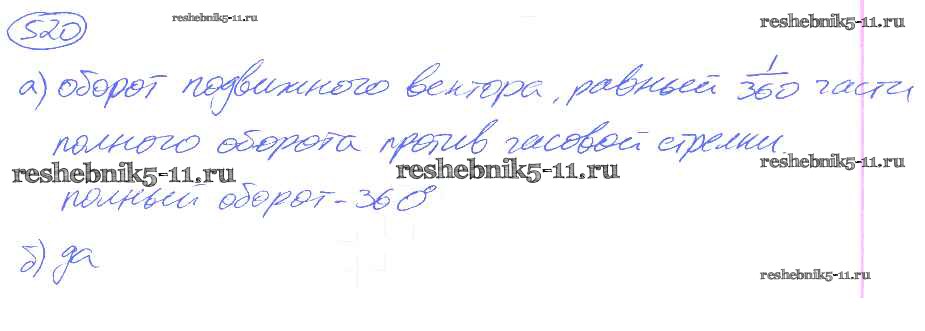 520
reshebnik5-11.ru
reshebnik5-11.ru
а) оборот подвижного вектора, равный 1/360 части
полного оборота против часовой стрелки.
reshebnik5-11.ru
reshebnik5-11.ru
reshebnik5-11.ru
полный оборот - 360°
б) да
reshebnik5-11.ru